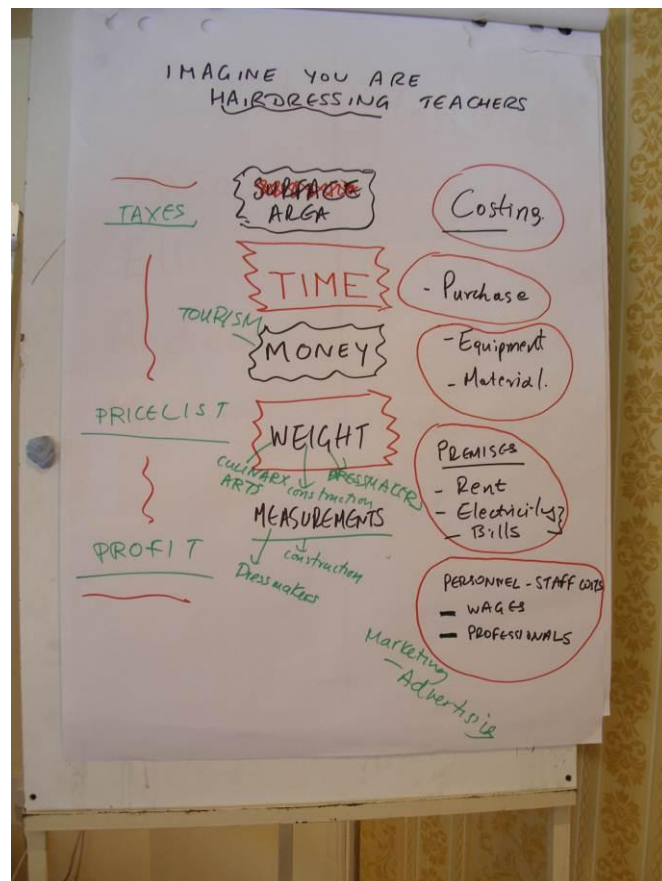 IMAGINE YOU ARE
HAIRDRESSING TEACHERS
TAXES
PRICELIST
PROFIT
SURFACE
AREA
TIME
TOURISM
MONEY
WEIGHT
CULINARY
ARTS
construction
DRESSMAKERS
MEASUREMENTS
construction
Dressmakers
Costing.
- Purchase
- Equipment
- Material.
PREMISES
- Rent
- Electricity
- Bills
PERSONNEL - STAFF COSTS
- WAGES
- PROFESSIONALS
Marketing
- Advertisig